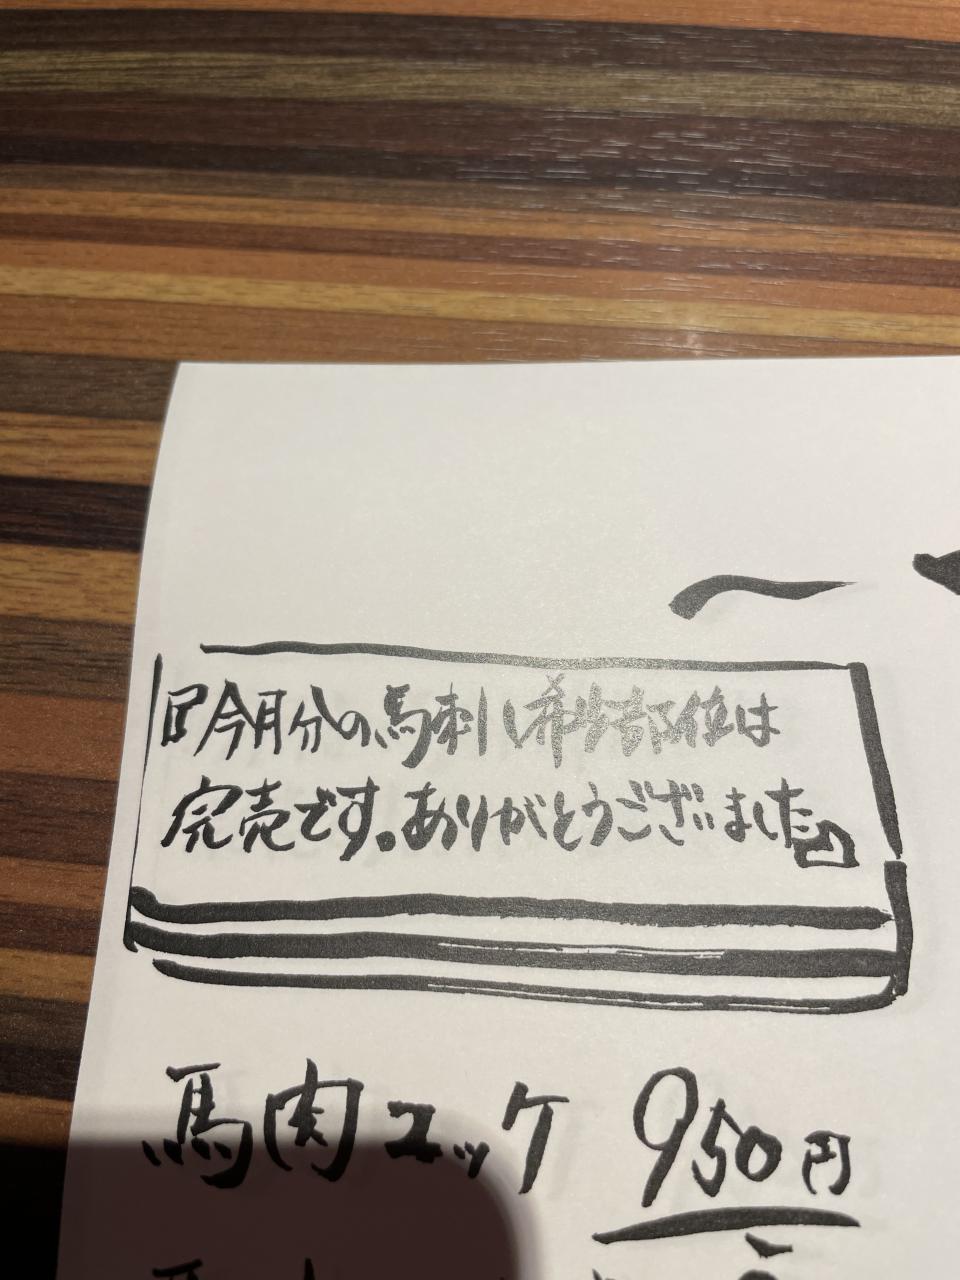 『今月分の馬刺し希少部位は
完売です。ありがとうございました』
馬肉ユッケ 950円